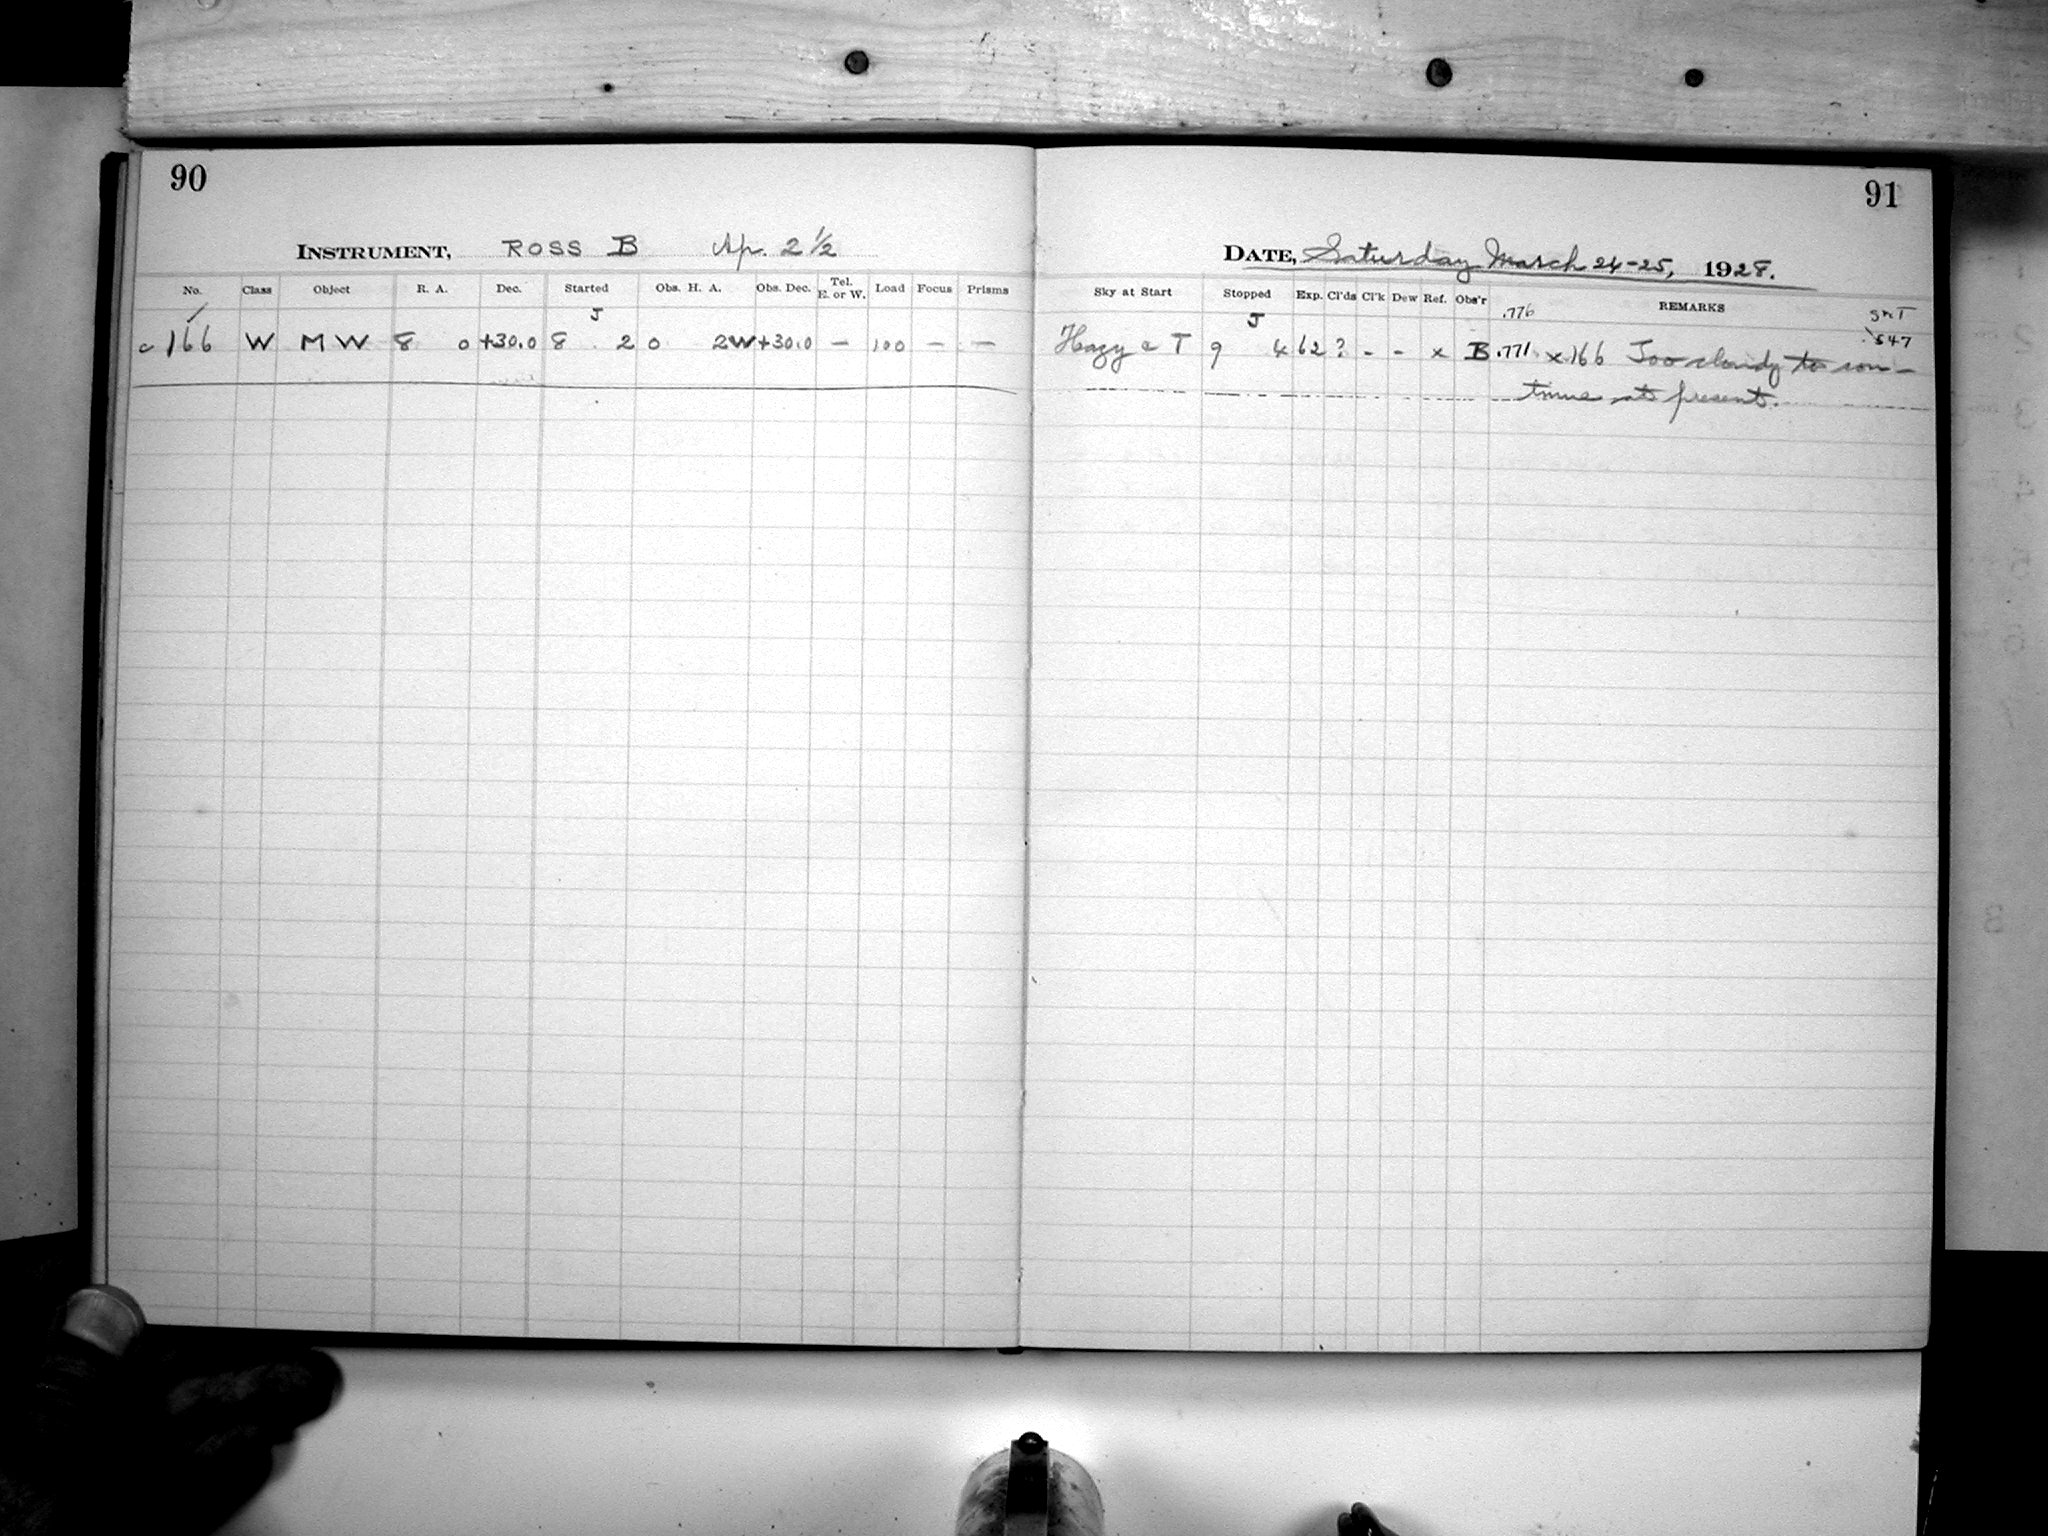 90
INSTRUMENT, ROSS B Ap. 2 1/2
No. Class Object R. A. Dec. Started Obs. H. A. Obs. Dec. Tel. E. or W. Load Focus Prisms
J
c 166 W M W 8 0 +30.0 8 2 0 2W +30.0 — 100 — —
91
DATE, Saturday March 24-25, 1928.
Sky at Start Stopped Exp. Cl'ds Cl'k Dew Ref. Obs'r REMARKS
J .776
Hazy & T 9 4 62 ? - - x B .771 x166 Too cloudy to con-
547
tinue at present.